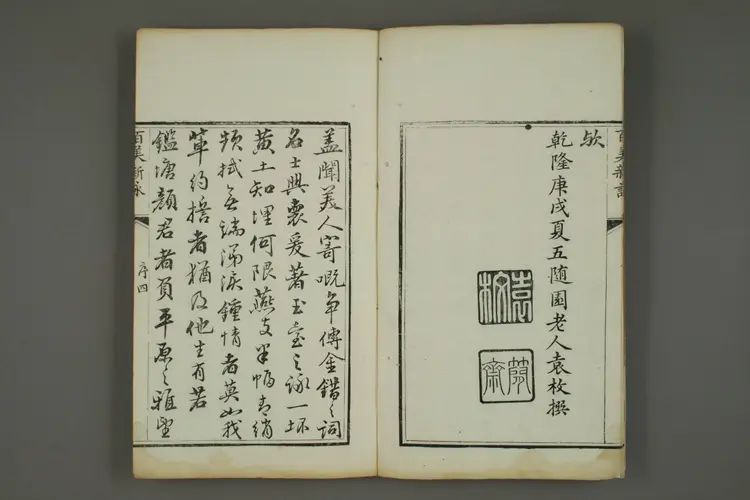 百美新詠
歟
乾隆庚戌夏五随園老人袁枚撰
袁枚
簡齋
盖聞美人寄嘅争傳金錯之詞
名士興衰爰著玉臺之詠一坏
黄土知埋何限燕支半幅青綃
頻拭無端涕淚鍾情者莫如我
輩約指者猶及他生有若
鑑塘顔君者負平原之雅望
百美新詠
序四